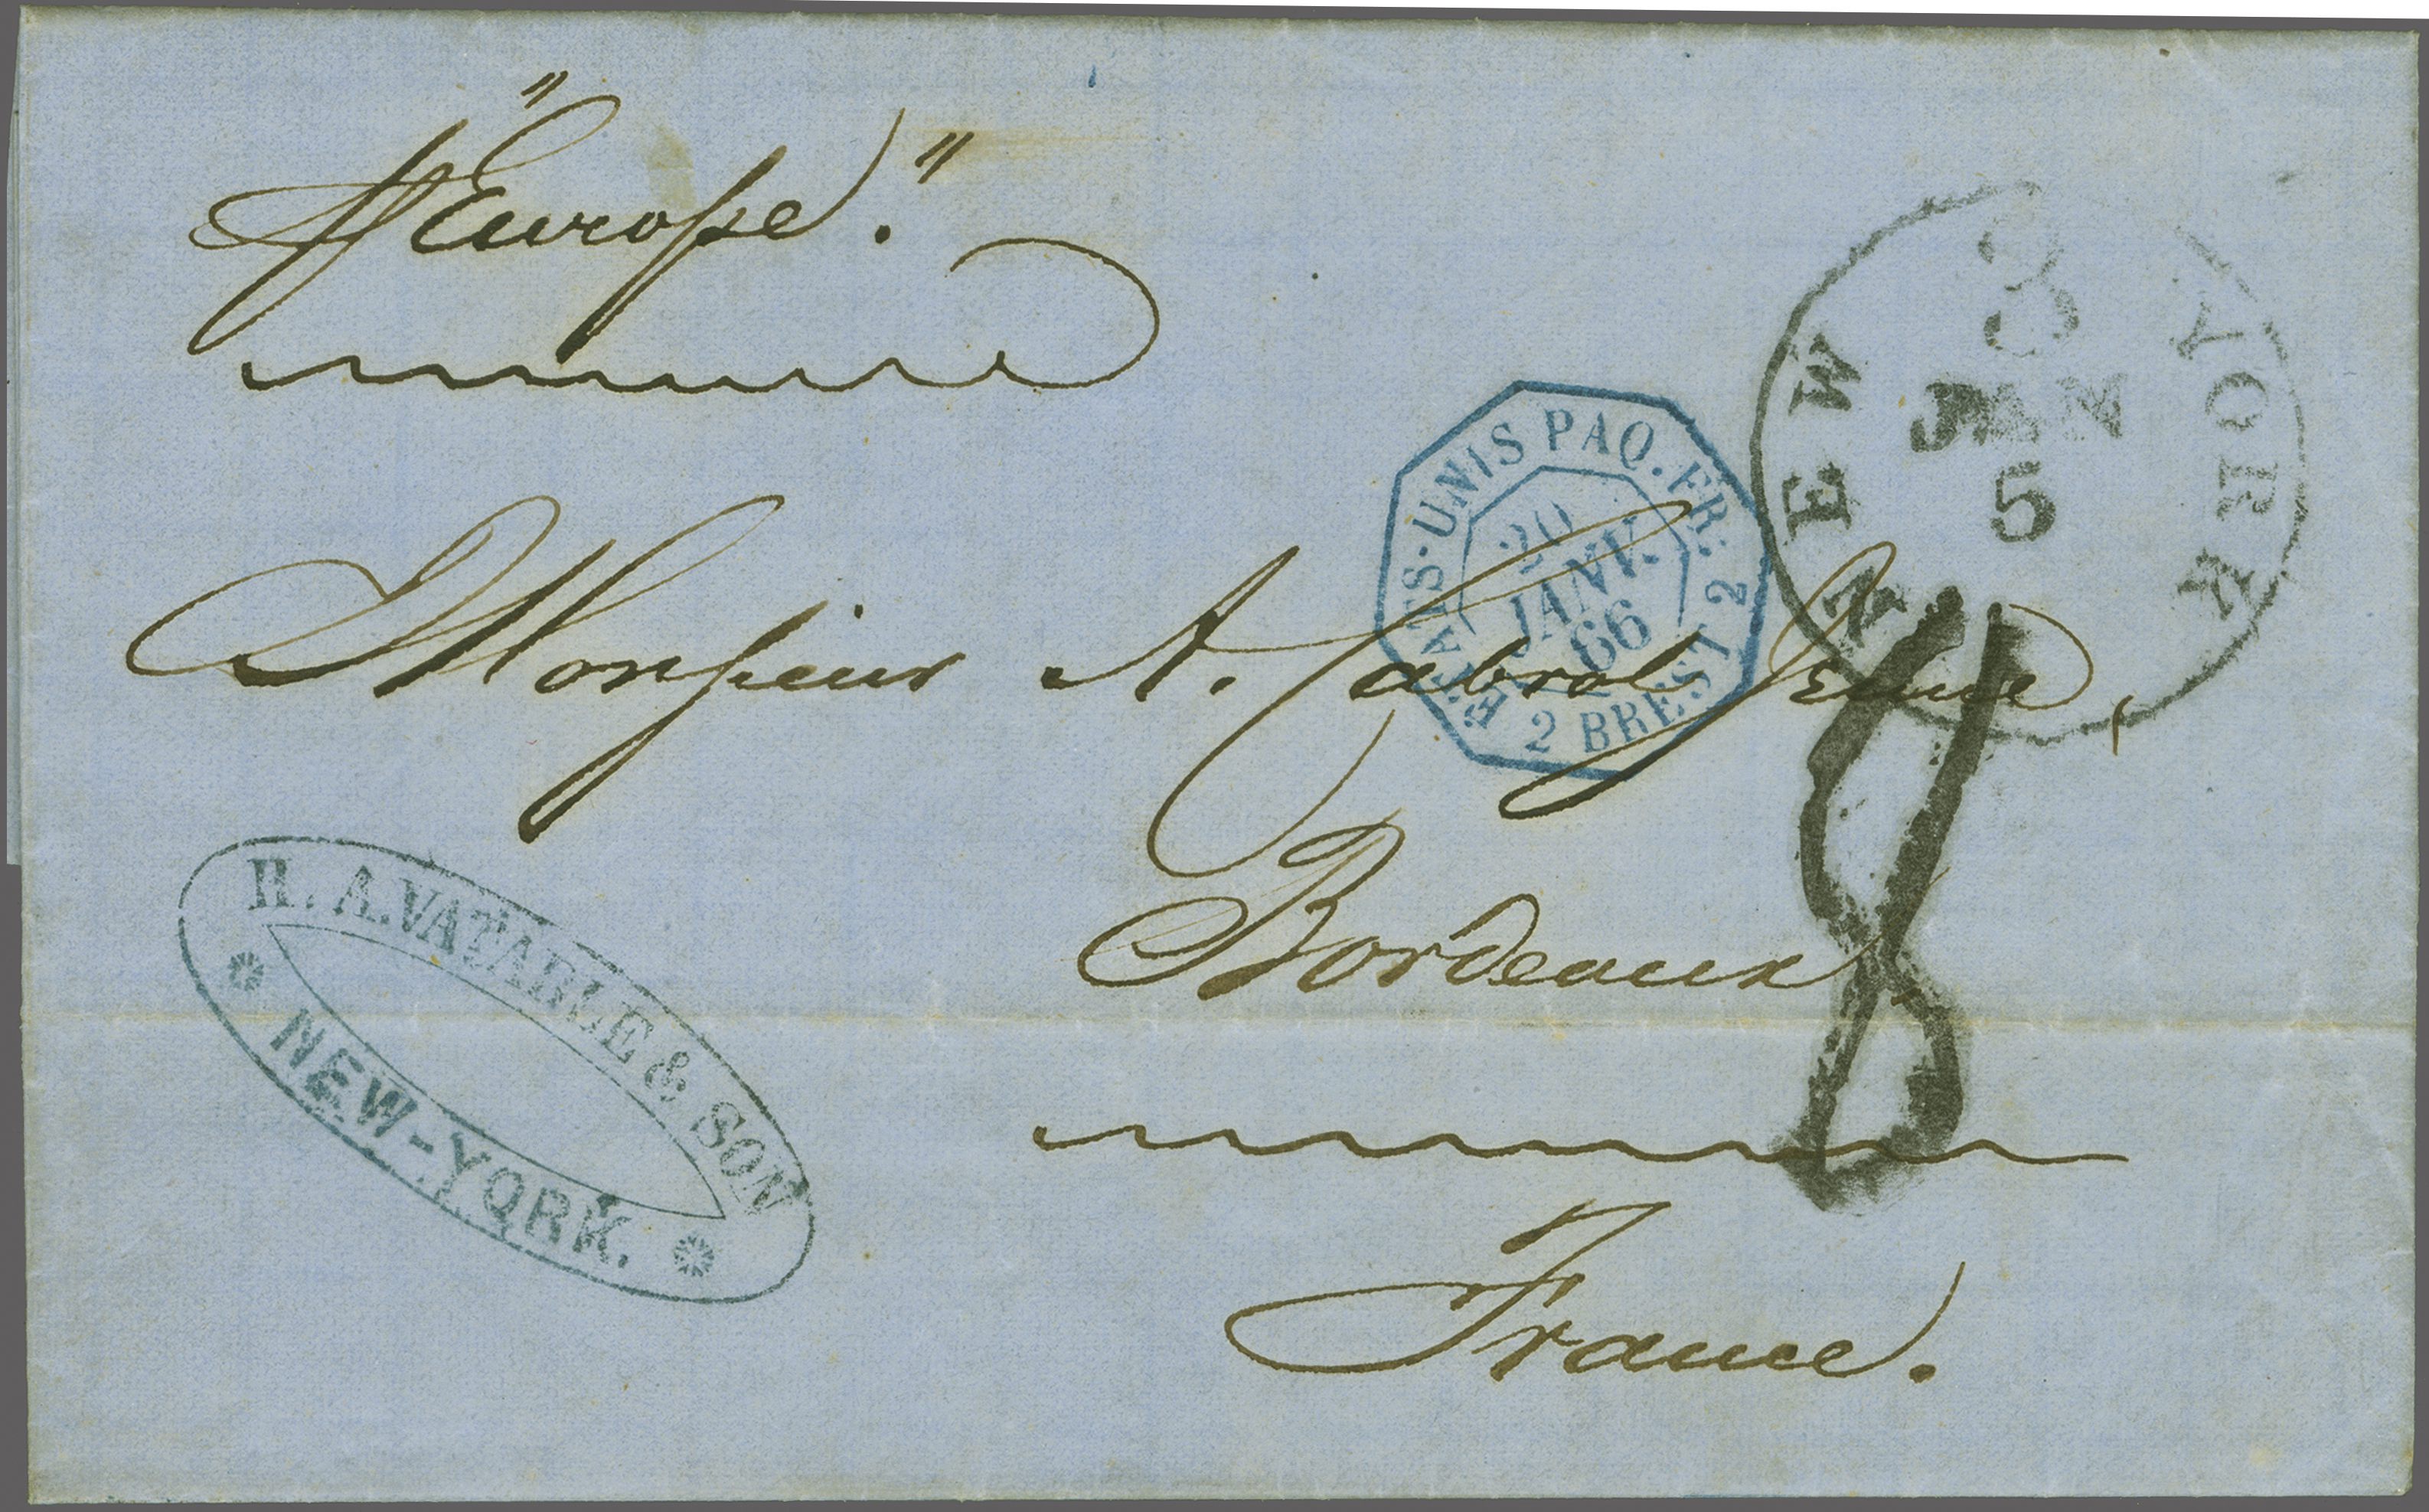 p "Europe."
NEW YORK
3
JAN
5
ETATS-UNIS PAQ. FR. 2 BREST 2
20
JANV.
66
Monsieur A. Cabrol Jeune,
8
Bordeaux,
H. A. VATABLE & SON
NEW-YORK.
France.